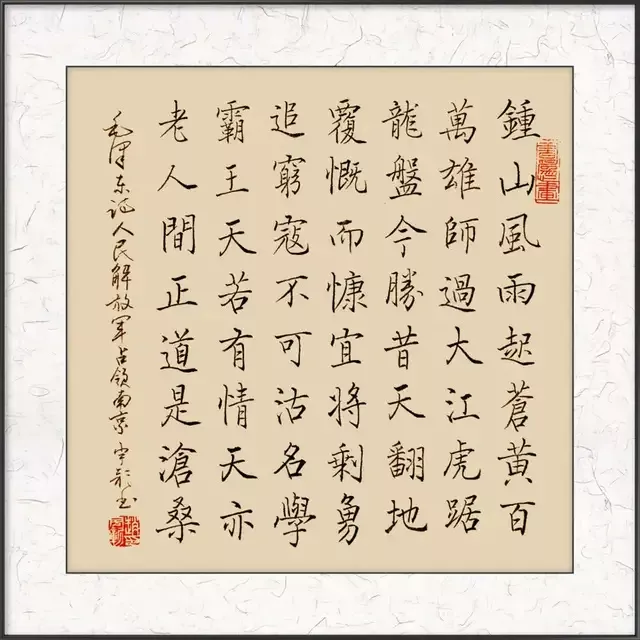 鍾山風雨起蒼黄百
萬雄師過大江虎踞
龍盤今勝昔天翻地
覆慨而慷宜將剩勇
追窮寇不可沽名學
霸王天若有情天亦
老人間正道是滄桑
毛泽东人民解放军占领南京书